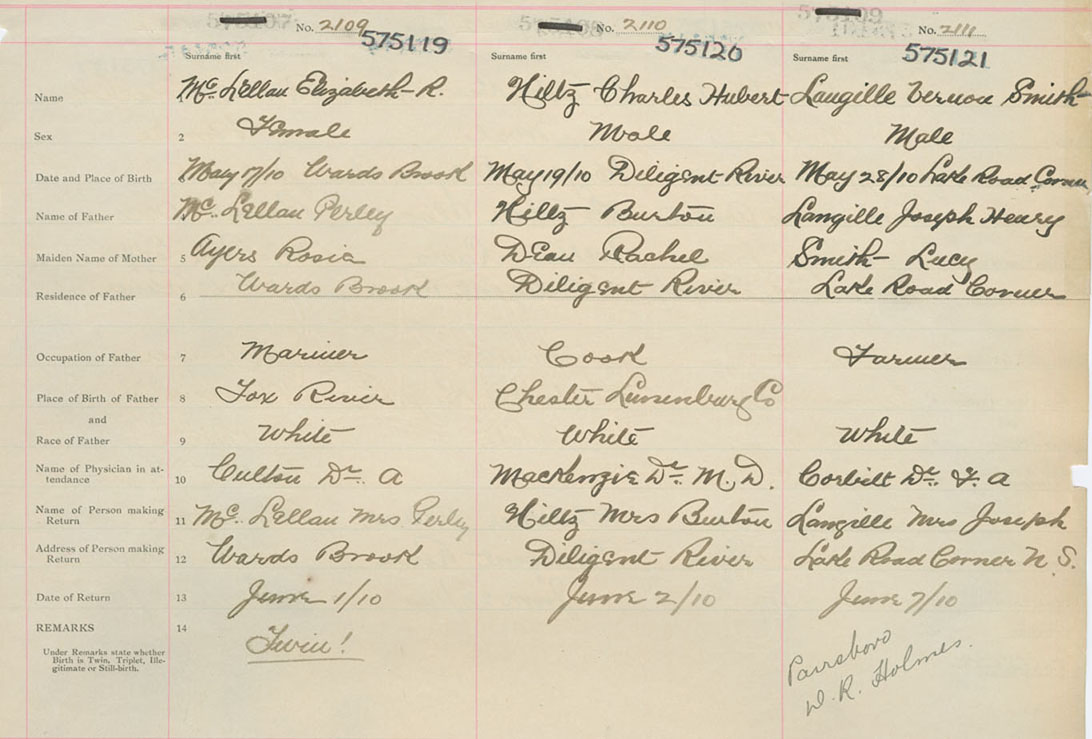 No. 2109 No. 2110 No. 2111
575119 575120 575121
Surname first Surname first Surname first
Name Mc. Lellan Elizabeth R. Hiltz Charles Hubert Langille Vernon Smith
Sex 2 Female Male Male
Date and Place of Birth May 17/10 Wards Brook May 19/10 Diligent River May 28/10 Lake Road Corner
Name of Father Mc. Lellan Perley Hiltz Burton Langille Joseph Henry
Maiden Name of Mother 5 Ayers Rosie Dean Rachel Smith Lucy
Residence of Father 6 Wards Brook Diligent River Lake Road Corner
Occupation of Father 7 Mariner Cook Farmer
Place of Birth of Father 8 Fox River Chester Lunenburg Co
and
Race of Father 9 White White White
Name of Physician in at-
tendance 10 Culton Dr. A MacKenzie Dr. M. D. Corbett Dr. F. A
Name of Person making
Return 11 Mc. Lellan Mrs Perley Hiltz Mrs Burton Langille Mrs Joseph
Address of Person making
Return 12 Wards Brook Diligent River Lake Road Corner N. S.
Date of Return 13 June 1/10 June 2/10 June 7/10
REMARKS 14 Twin!
Under Remarks state whether
Birth is Twin, Triplet, Ille-
gitimate or Still-birth.
Parrsboro
D. R. Holmes.